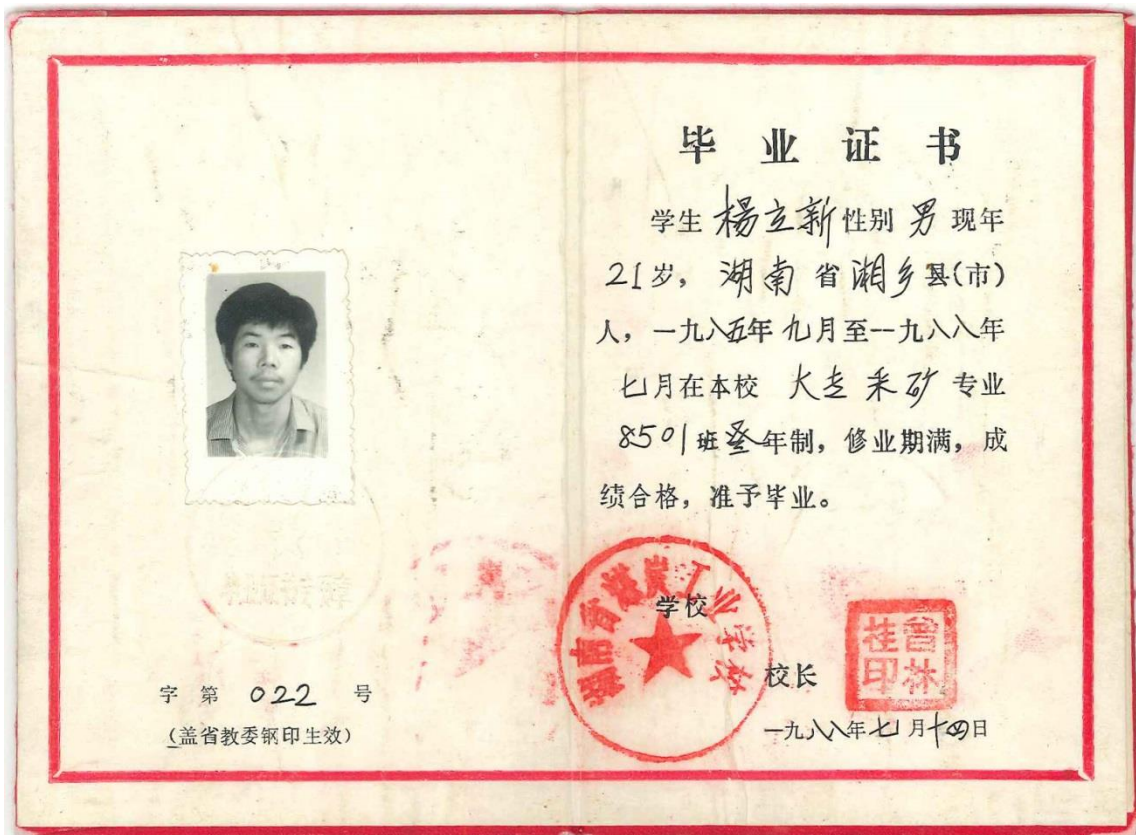 毕业证书
学生 楊立新 性别 男 现年
21岁，湖南省湘乡县(市)
人，一九八五年九月至一九八八年
七月在本校 采矿 专业
8501班叁年制，修业期满，成
绩合格，准予毕业。
湖南省煤炭工业学校
学校
校长
曾林桂印
一九八八年七月十四日
字第 022 号
(盖省教委钢印生效)